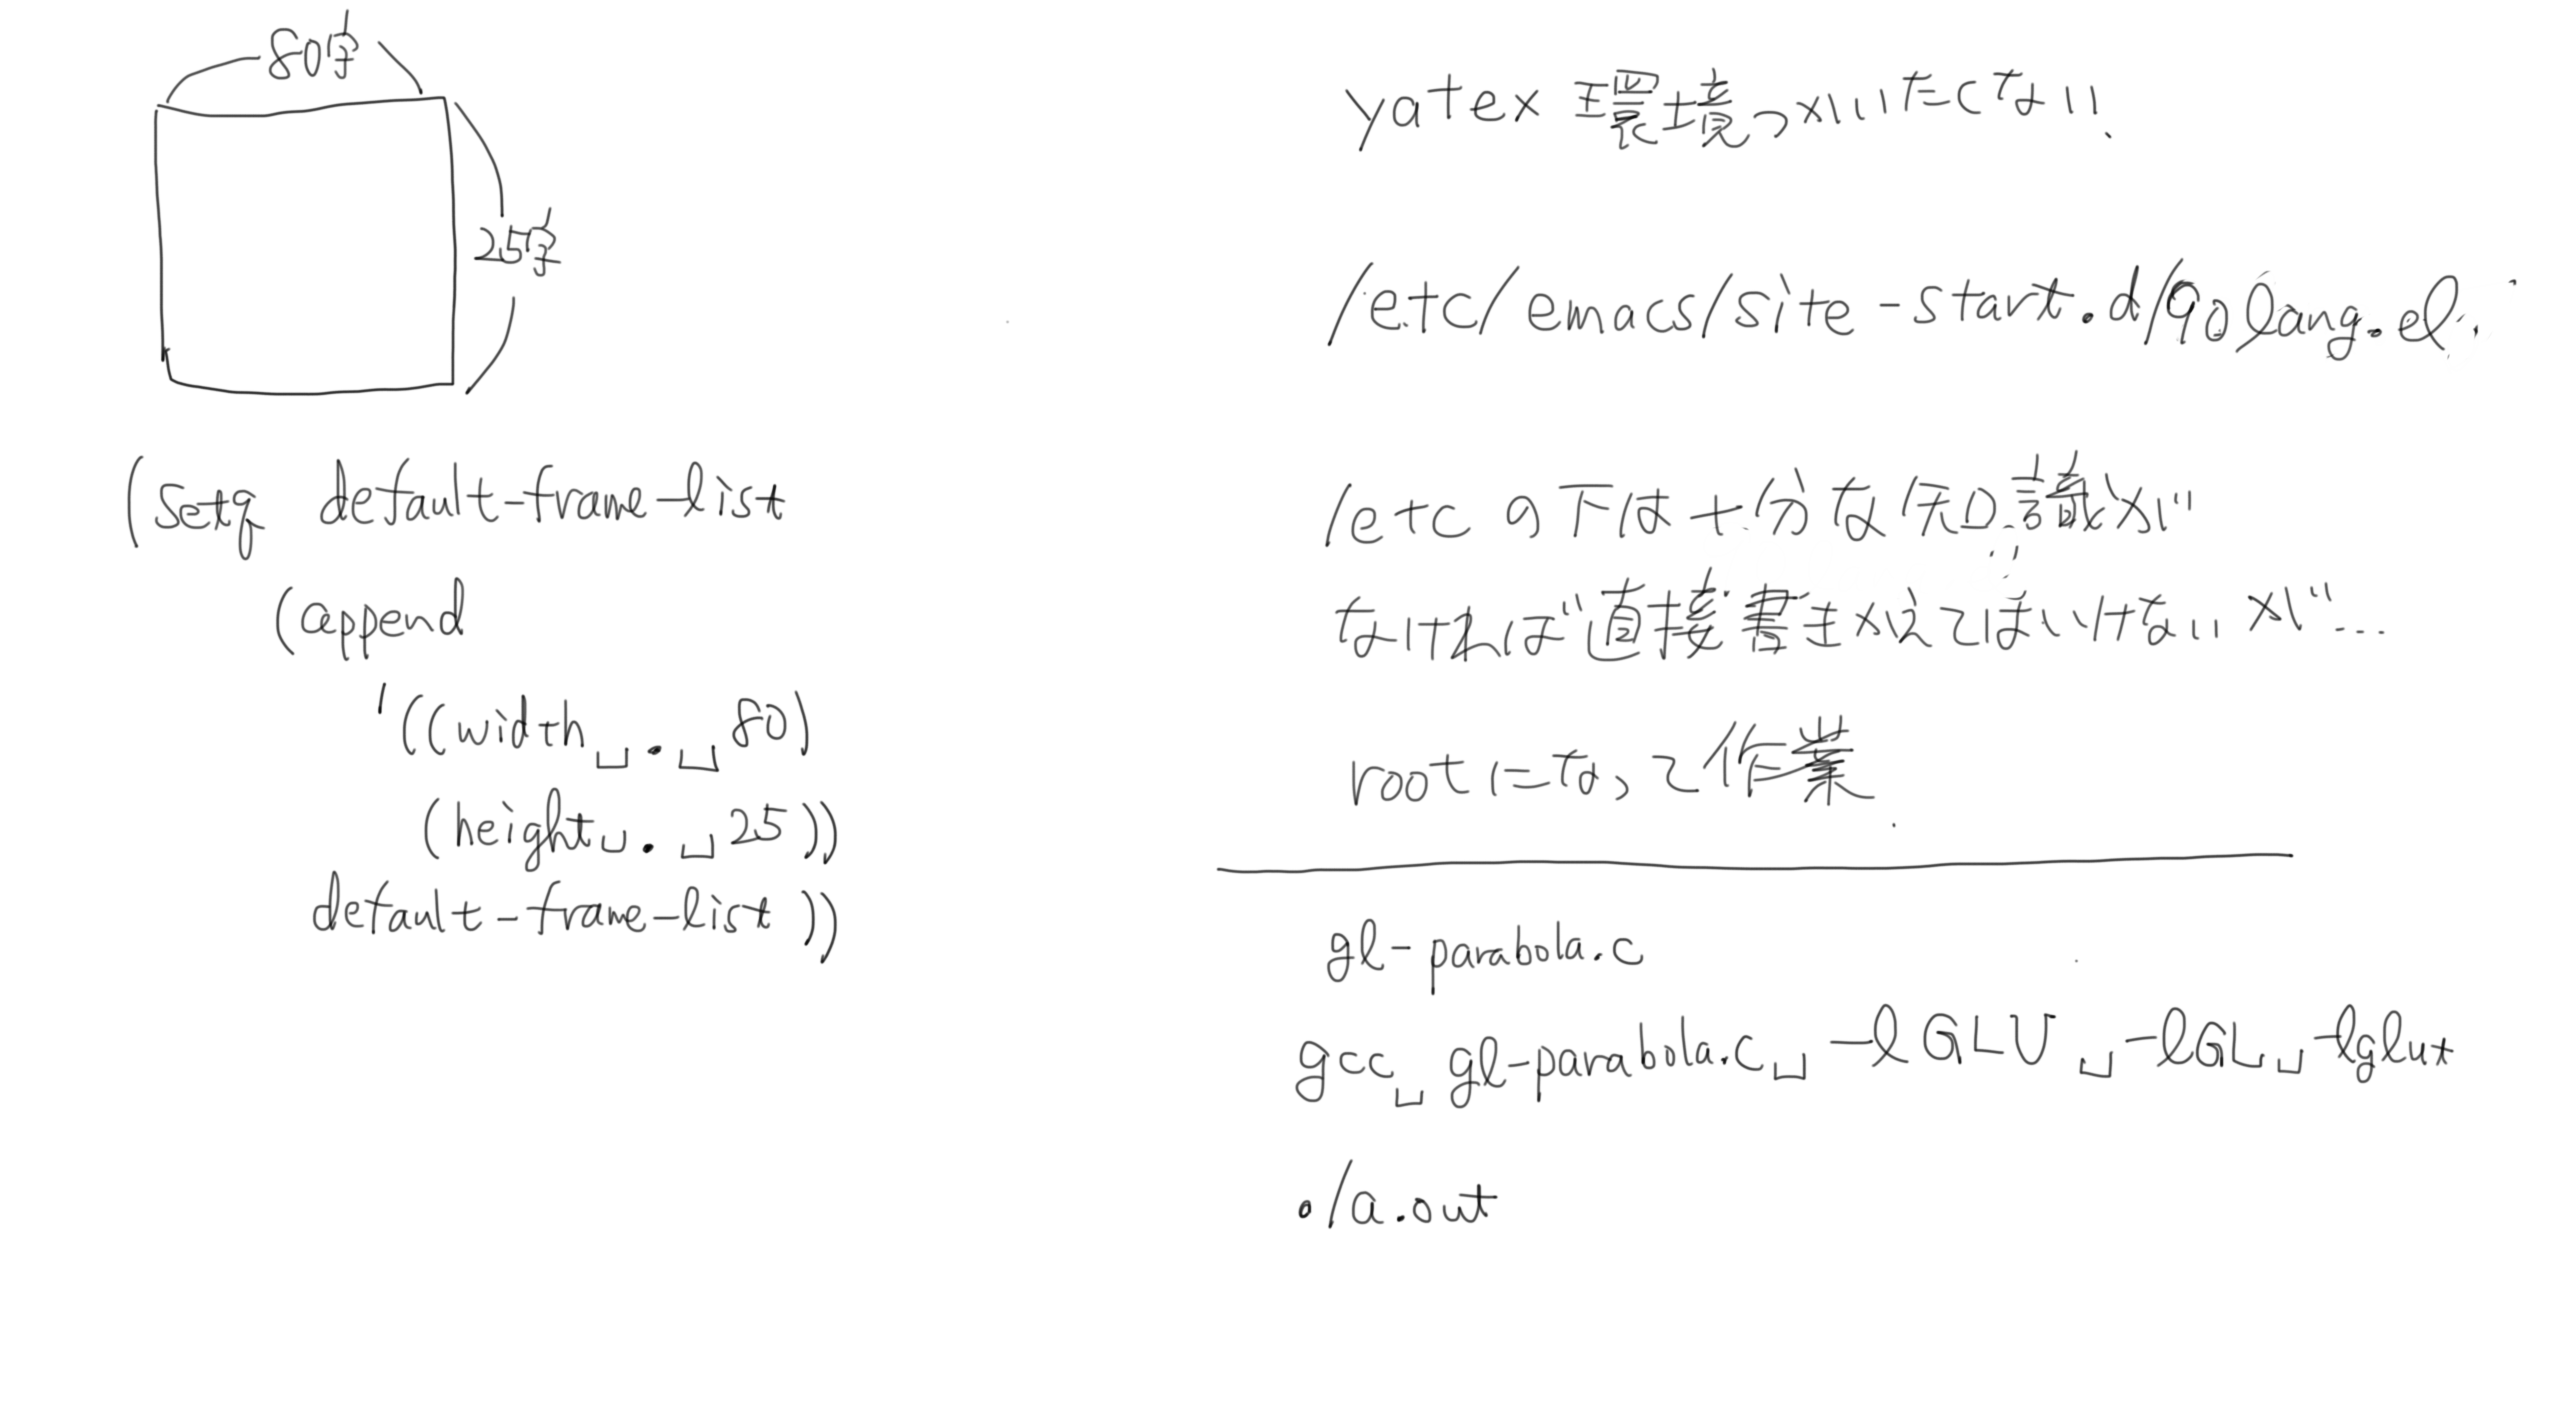 80字
25字
(setq default-frame-list
(append
'((width␣.␣80)
(height␣.␣25))
default-frame-list))
yatex 環境つかいたくない
/etc/emacs/site-start.d/90lang.el
/etc の下は十分な知識が
なければ直接書きかえてはいけないが...
rootになって作業
gl-parabola.c
gcc␣gl-parabola.c␣-lGLU␣-lGL␣-lglut
./a.out